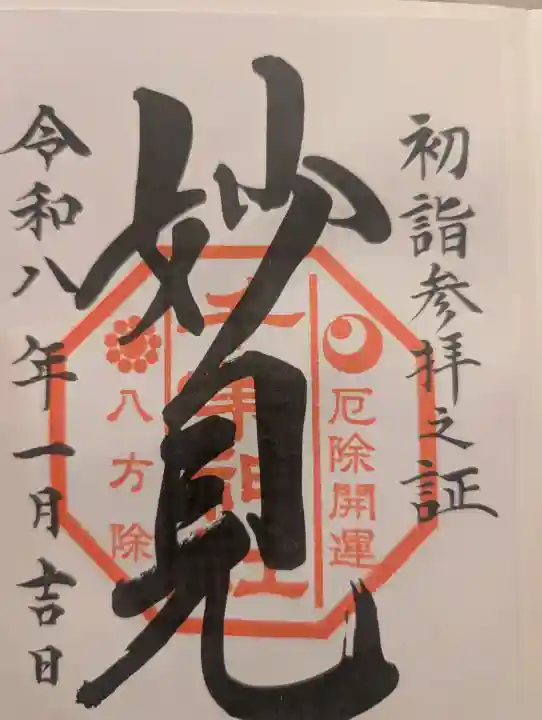 初詣参拝之証
妙見
令和八年一月吉日
厄除開運
八方除